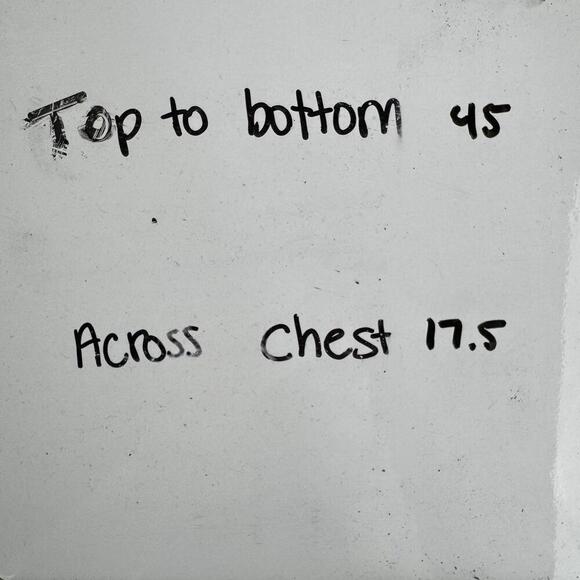 Top to bottom 45
Across Chest 17.5